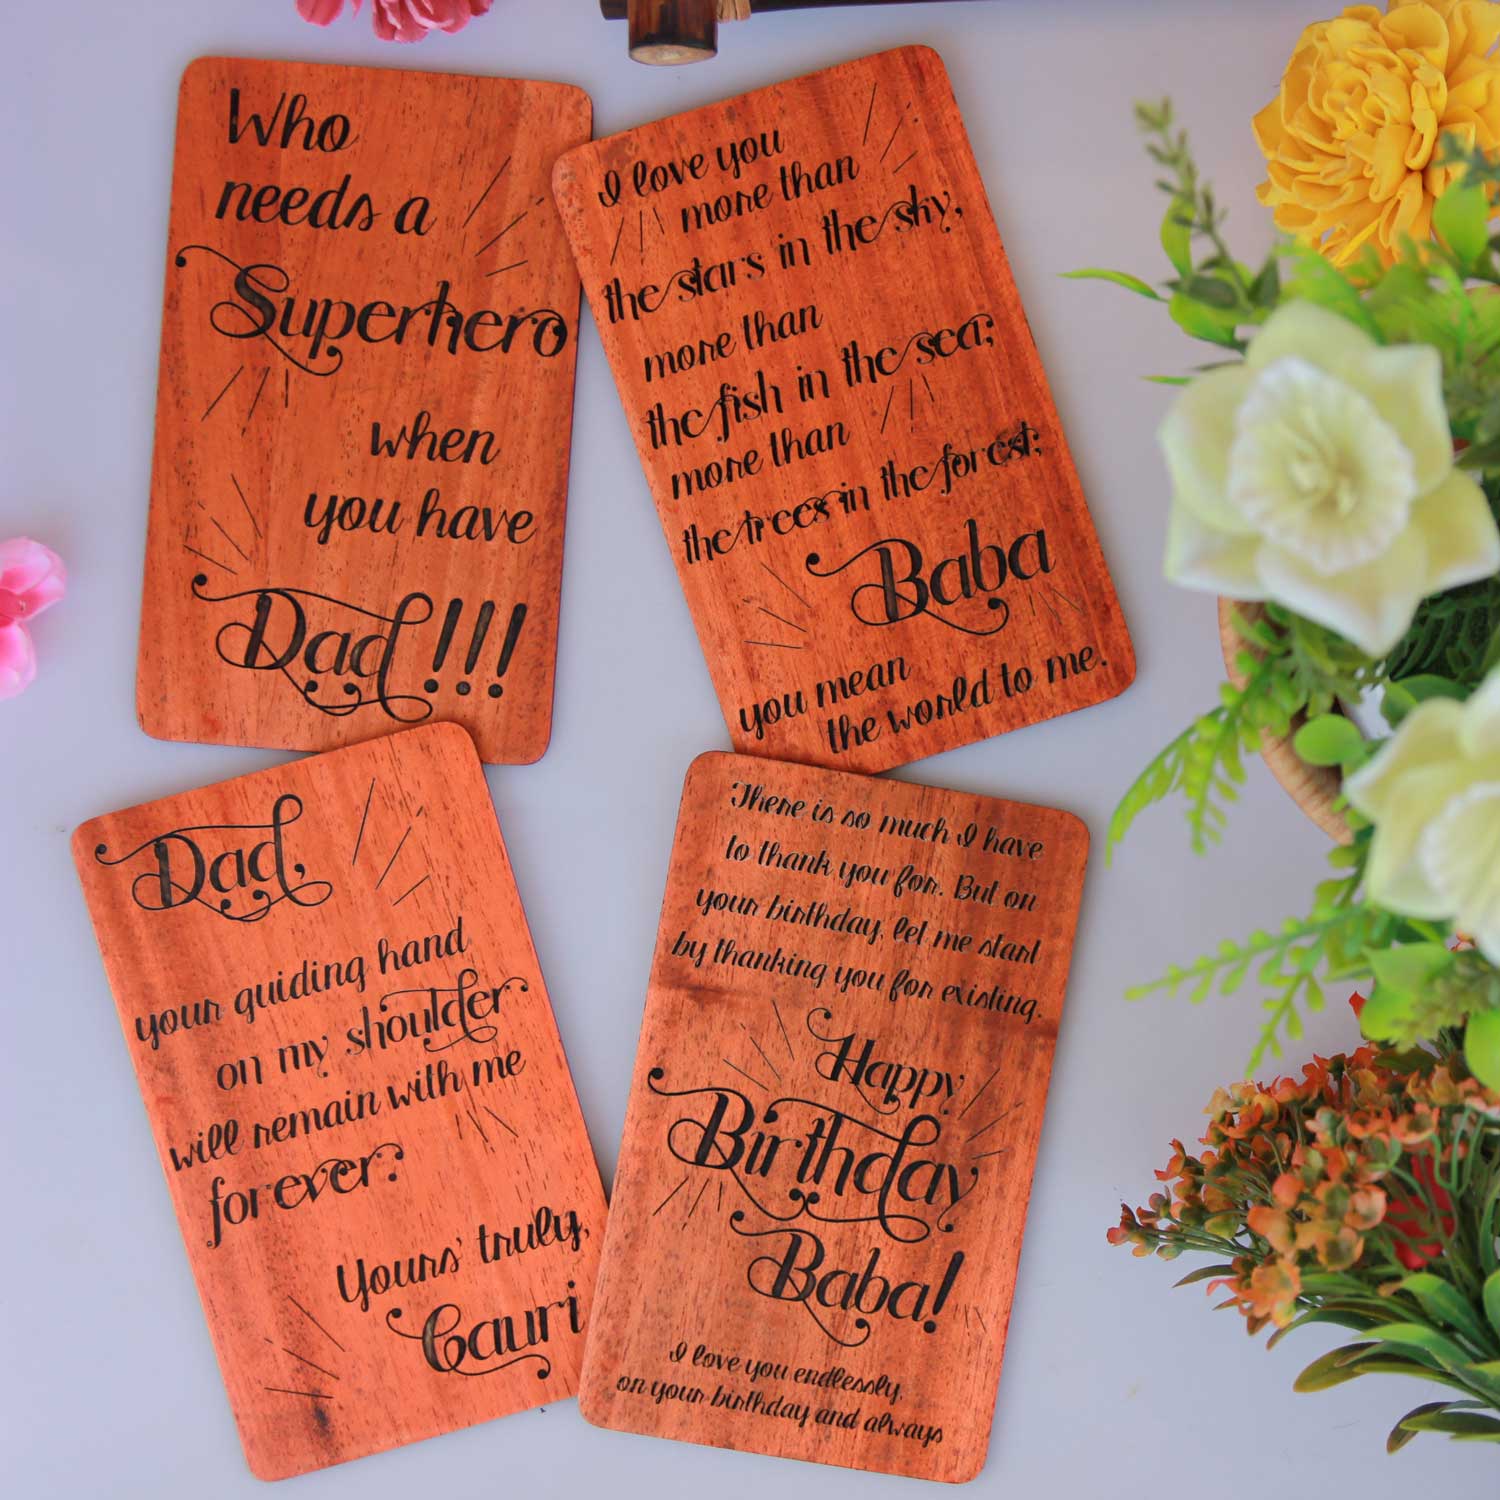 Who
needs a
Superhero
when
you have
Dad!!!
I love you
more than
the stars in the sky,
more than
the fish in the sea;
more than
the trees in the forest;
Baba
you mean
the world to me.
Dad,
your guiding hand
on my shoulder
will remain with me
forever.
Yours' truly,
Gauri
There is so much I have
to thank you for. But on
your birthday, let me start
by thanking you for existing.
Happy
Birthday
Baba!
I love you endlessly,
on your birthday and always